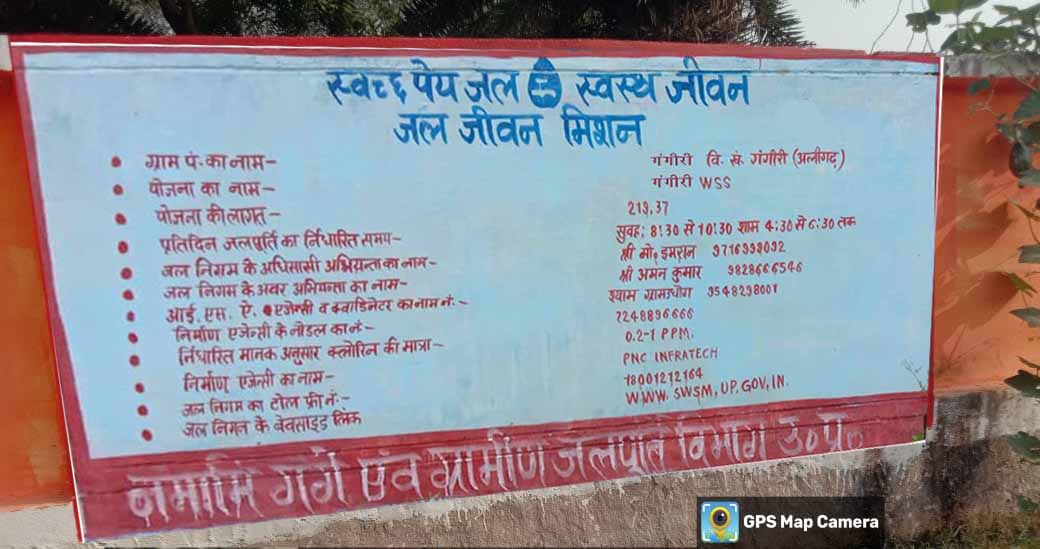 स्वच्छ पेय जल स्वस्थ जीवन
जल जीवन मिशन
• ग्राम पं. का नाम- गंगीरी वि. खं. गंगीरी (अलीगढ)
• योजना का नाम- गंगीरी WSS
• योजना की लागत- 219.37
• प्रतिदिन जलपूर्ति का निर्धारित समय- सुवह: 8:30 से 10:30 शाम 4:30 से 6:30 तक
• जल निगम के अधिसासी अभियन्ता का नाम- श्री मो. इमरान 9716998092
• जल निगम के अवर अभियन्ता का नाम- श्री अमन कुमार 9828666546
• आई. एस. ऐ. एजेन्सी व क्वाडिनेटर का नाम नं.- श्याम ग्रामउधोग 9548298001
• निर्माण एजेन्सी के नोडल का नं- 7248896666
• निर्धारित मानक अनुसार क्लोरिन की मात्रा- 0.2-1 PPM.
• निर्माण एजेन्सी का नाम- PNC INFRATECH
• जल निगम का टोल फ्री नं:- 18001212164
• जल निगम के बेवसाइड लिंक WWW. SWSM, UP. GOV, IN.
नमामि गंगे एंव ग्रामीण जलपूर्ति विभाग उ०प्र०
GPS Map Camera